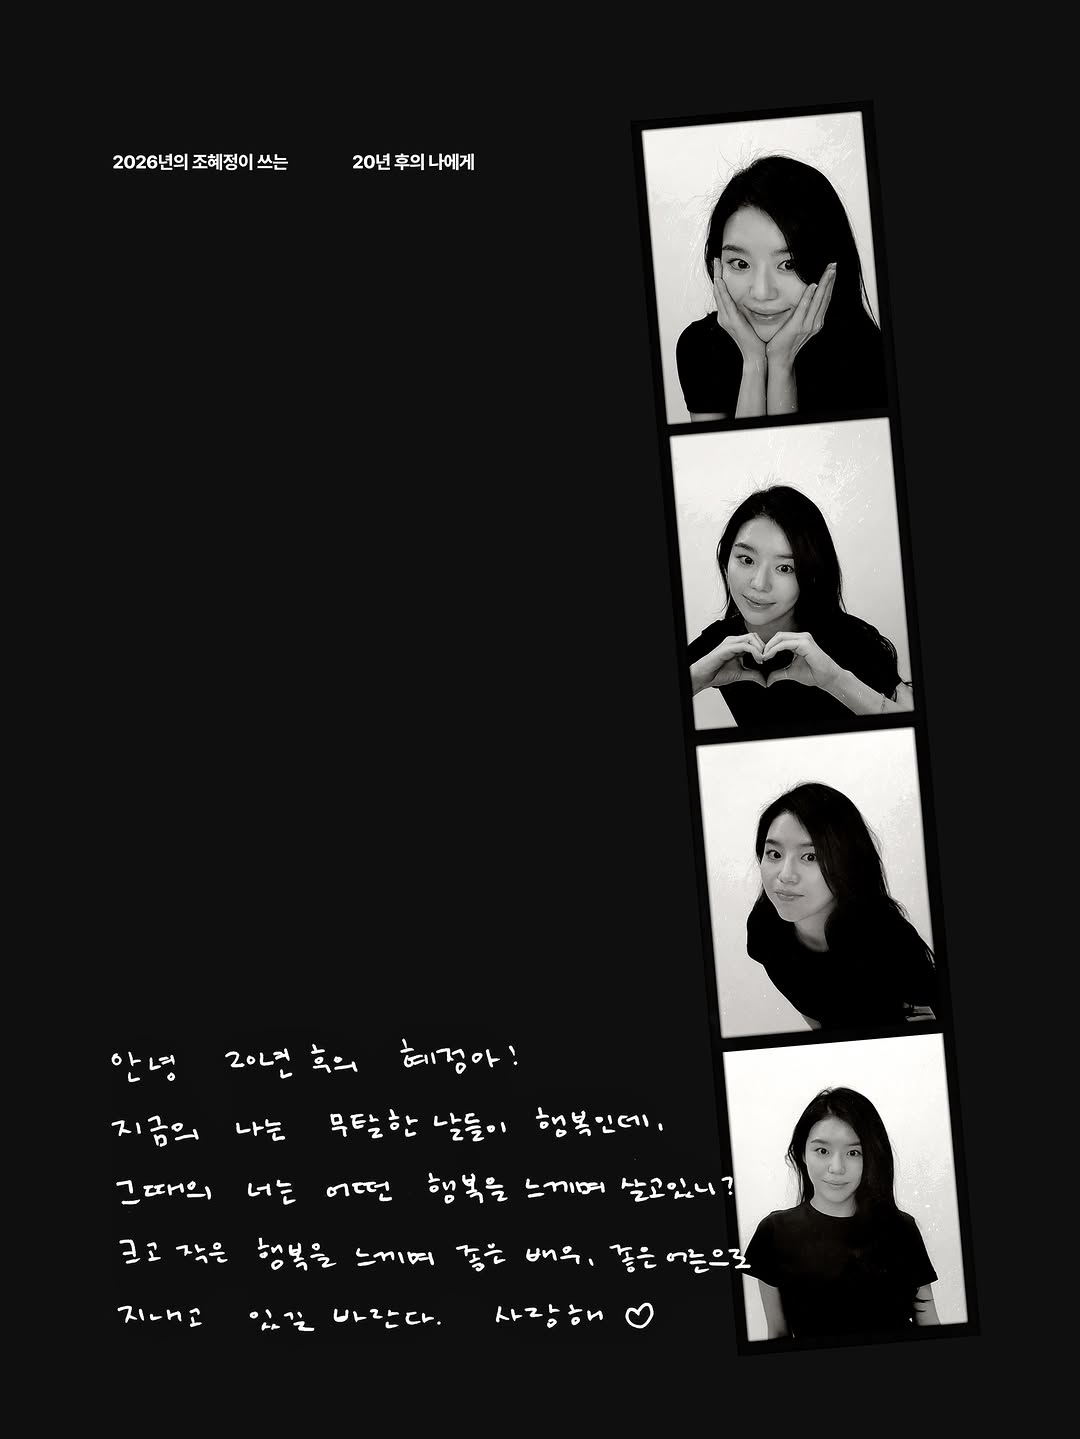 2026년의 조혜정이 쓰는 20년 후의 나에게
안녕 20년 후의 혜정아!
지금의 나는 무탈한 날들이 행복인데,
그때의 너는 어떤 행복을 느끼며 살고있니?
크고 작은 행복을 느끼며 좋은 배우, 좋은 어른으로
지내고 있길 바란다. 사랑해 ♡